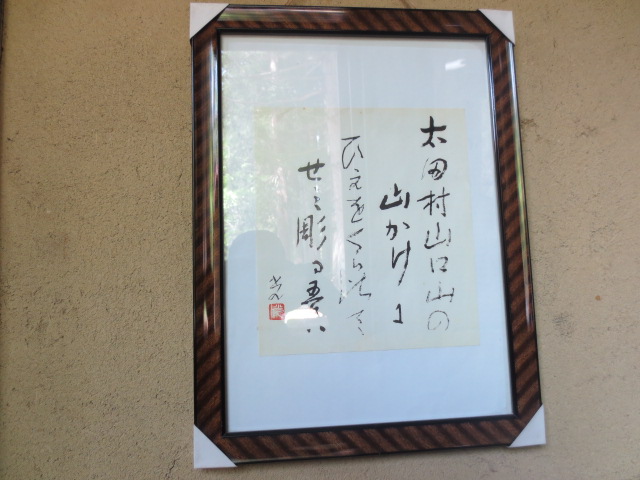 太田村山口山の
山かげに
ひえをくらひて
せミ彫る吾は
光